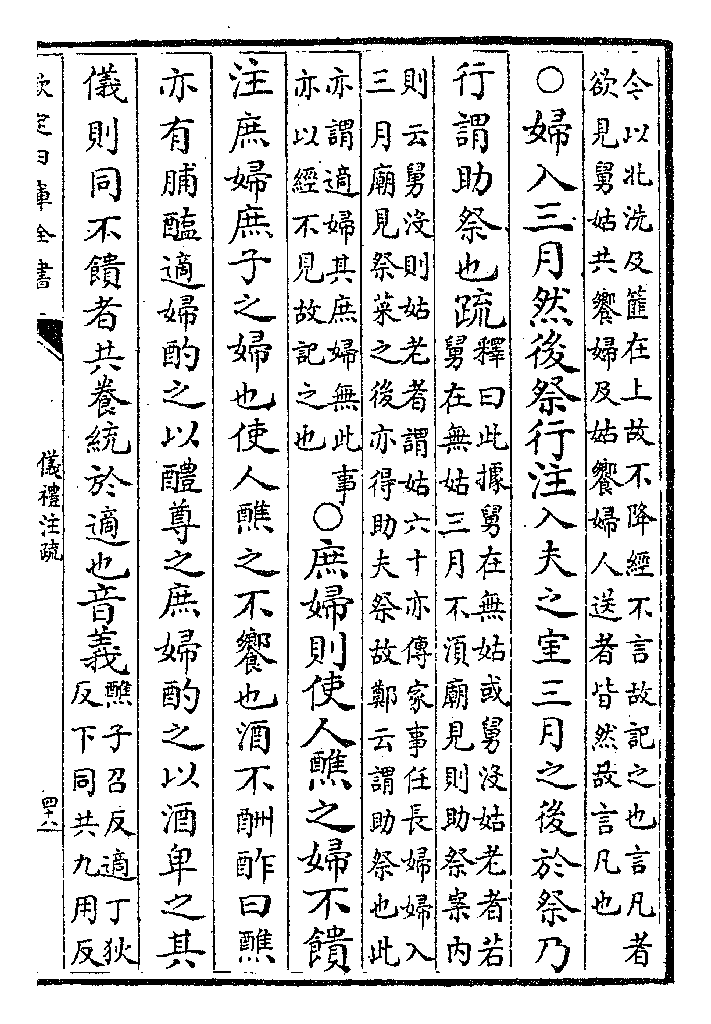 今以北洗及篚在上故不降經不言故記之也言凡者
欲見舅姑共饗婦及姑饗婦人送者皆然故言凡也
○婦入三月然後祭行注入夫之室三月之後於祭乃
行謂助祭也疏釋曰此據舅在無姑或舅沒姑老者若
舅在無姑三月不須廟見則助祭案內
則云舅沒則姑老者謂姑六十亦傳家事任長婦婦入
三月廟見祭菜之後亦得助夫祭故鄭云謂助祭也此
亦謂適婦其庶婦無此事
亦以經不見故記之也
○庶婦則使人醮之婦不饋
注庶婦庶子之婦也使人醮之不饗也酒不酬酢曰醮
亦有脯醢適婦酌之以醴尊之庶婦酌之以酒卑之其
儀則同不饋者共養統於適也音義醮子召反適丁狄
反下同共九用反
欽定四庫全書
儀禮注疏
四十八